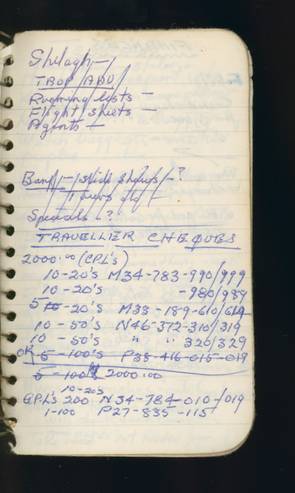 Shelagh —
TROP/ADV
Rooming lists —
Flight sheets —
Agents —
Banff — slide shows — ?
Tours
Specials ?
TRAVELLER CHEQUES
2000.00 (CPL's)
10-20's M34-783-990/999
10-20's -980/989
5-20's M33-189-610/614
10-50's N46-372-310/319
10-50's " " 320/329
OR 5-100's P33-416-015-019
5-100's 2000.00
10-20's
CPL's 200 N34-784-010-/019
1-100 P27-835-115